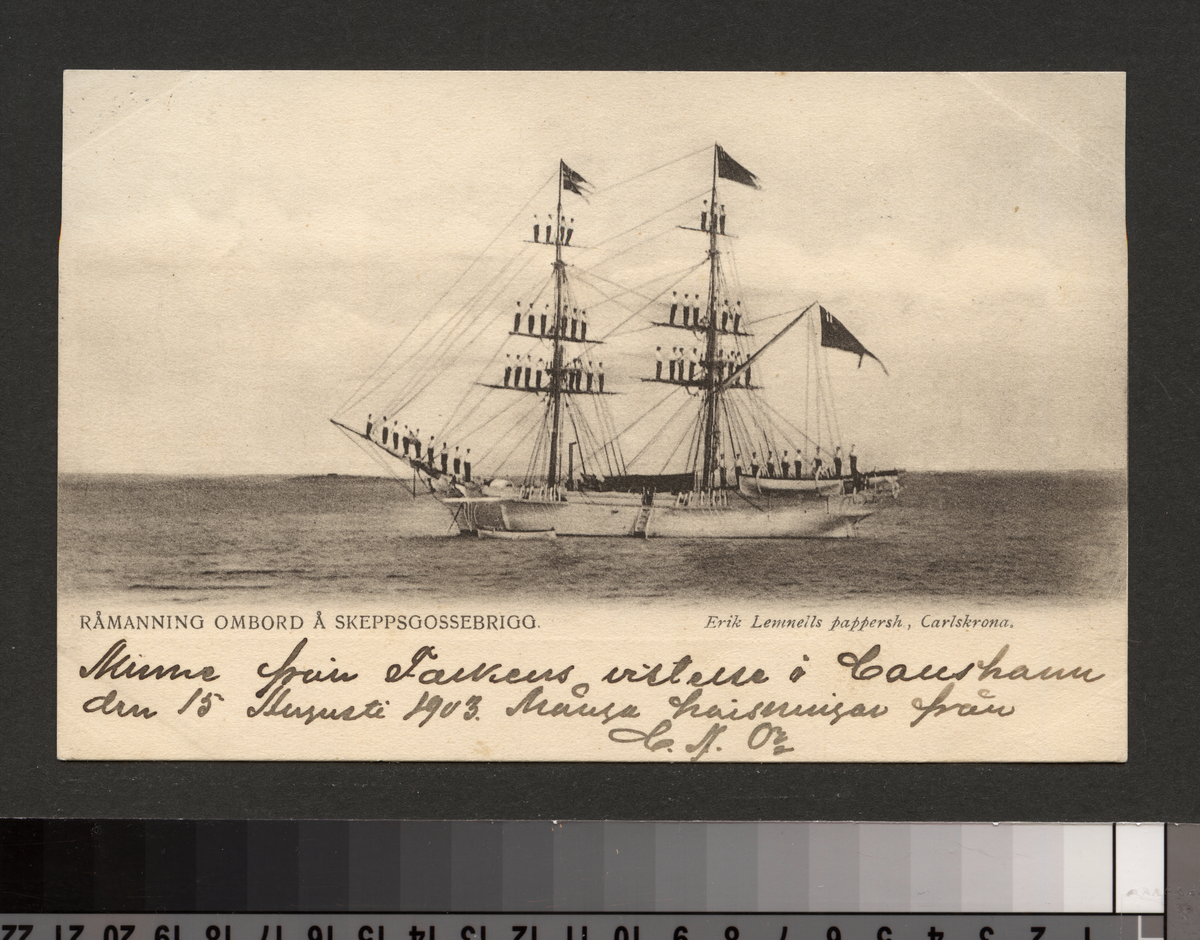 RÅMANNING OMBORD Å SKEPPSGOSSEBRIGG.
Erik Lemnells pappersh, Carlskrona.
Minne från Falkens vistelse i
den 15 Augusti 1903. Många helsningar från
C. N.
22 21 20 19 18 17 16 15 14 13 12 11 10 9 8 7 6 5 4 3 2 1